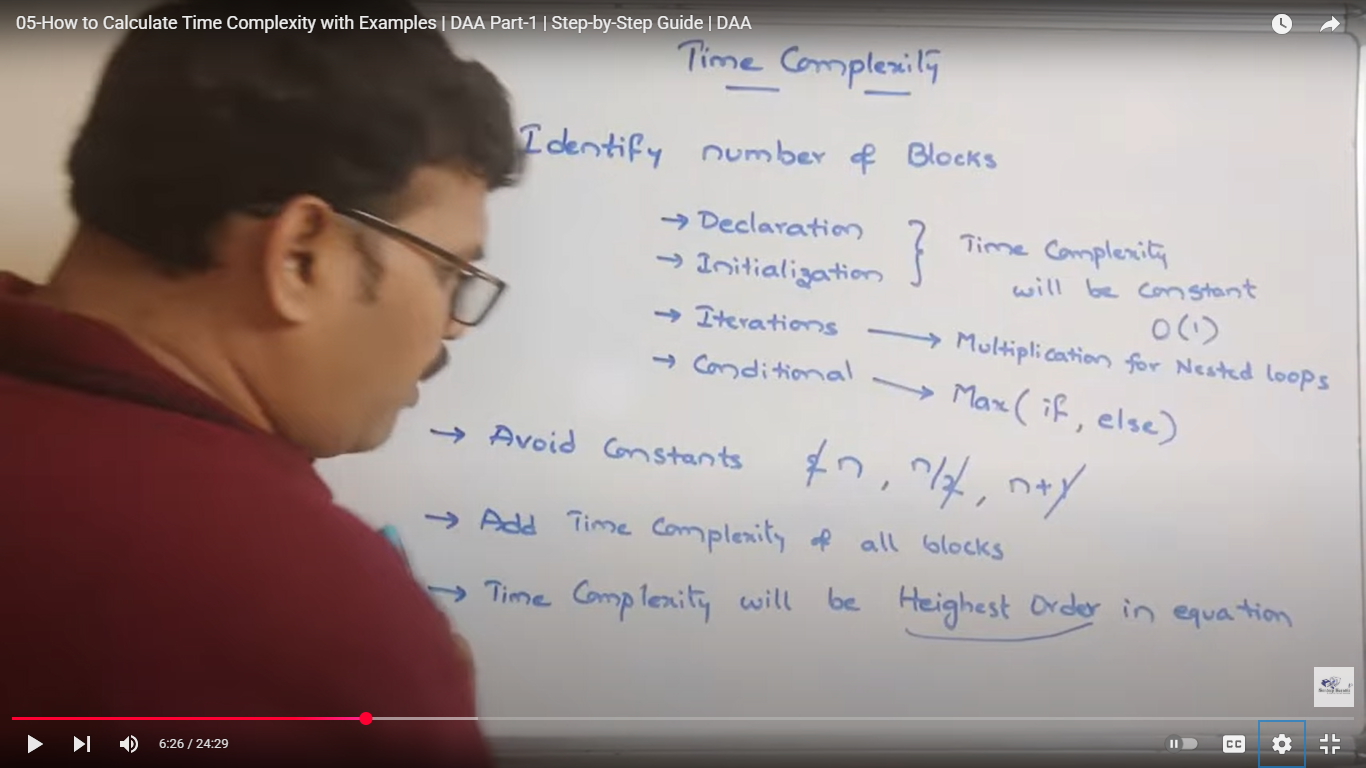 05-How to Calculate Time Complexity with Examples | DAA Part-1 | Step-by-Step Guide | DAA
Time Complexity
Identify number of Blocks
→ Declaration
→ Initialization
} Time Complexity
will be constant
O(1)
→ Iterations → Multiplication for Nested loops
→ Conditional → Max( if, else)
→ Avoid Constants 2n, n/2, n+1
→ Add Time Complexity of all blocks
→ Time Complexity will be Heighest Order in equation
6:26 / 24:29
CC